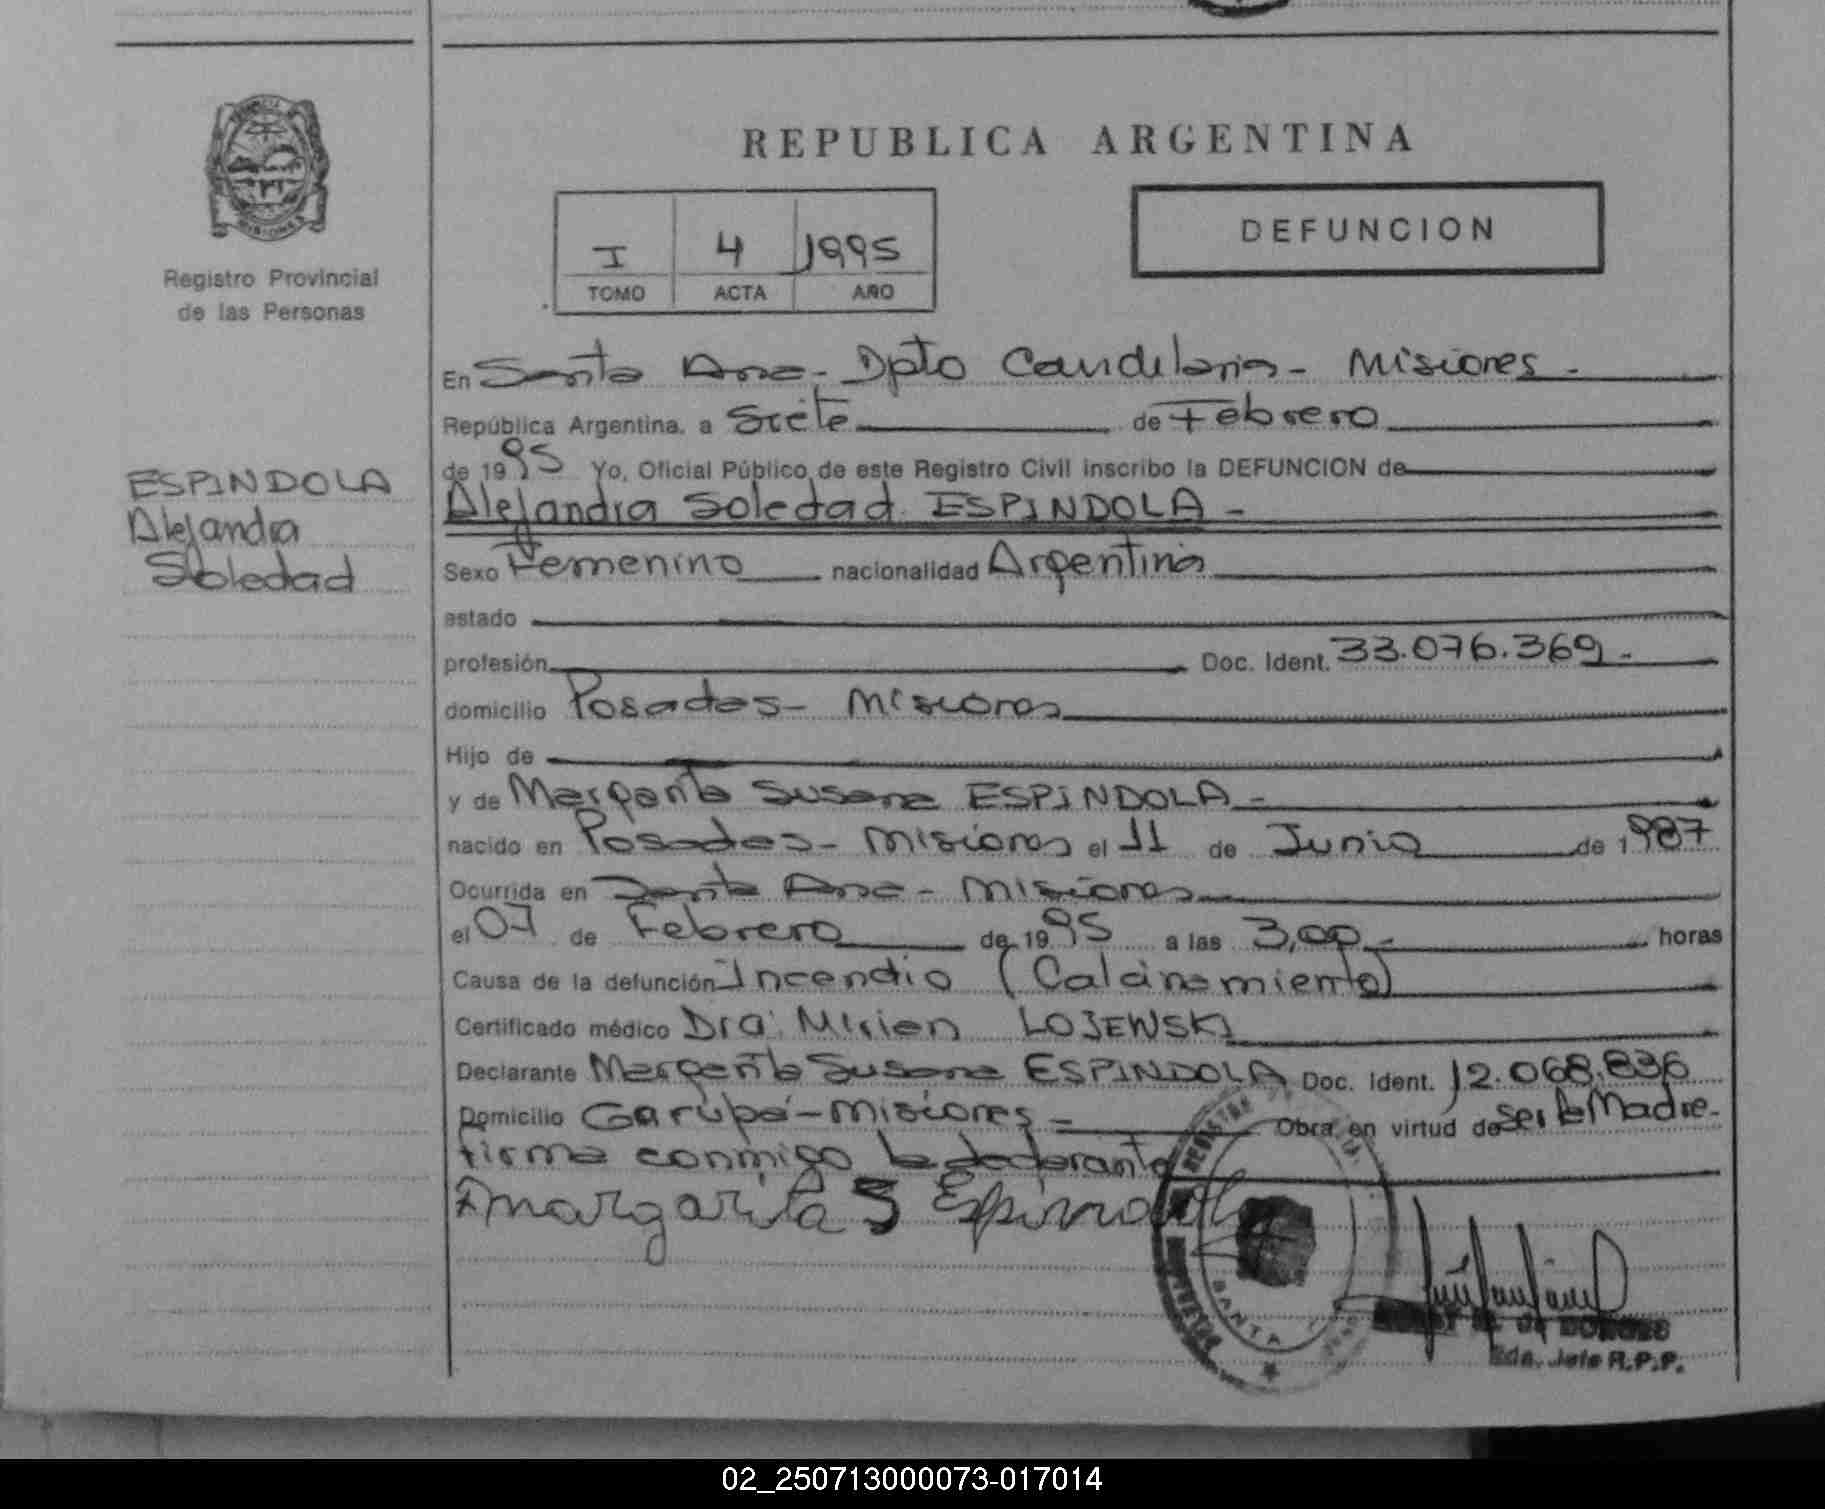 Registro Provincial
de las Personas
ESPINDOLA
Alejandra
Soledad
REPUBLICA ARGENTINA
I 4 1995
TOMO ACTA AÑO
DEFUNCION
En Santa Ana - Dpto Candelaria - Misiones -
República Argentina, a Siete de Febrero
de 1995 Yo, Oficial Público de este Registro Civil inscribo la DEFUNCION de
Alejandra Soledad ESPINDOLA -
Sexo Femenino nacionalidad Argentina
estado
profesión Doc. Ident. 33.076.369.-
domicilio Posadas - Misiones
Hijo de
y de Margarita Susana ESPINDOLA -
nacido en Posadas - Misiones el 11 de Junio de 1987
Ocurrida en Santa Ana - Misiones
el 07 de Febrero de 1995 a las 3,00 - horas
Causa de la defunción Incendio (Calcinamiento)
Certificado médico Dra: Mirien LOJEWSKI
Declarante Margarita Susana ESPINDOLA Doc. Ident. 12.068.836
Domicilio Garupá - Misiones - Obra en virtud de ser la Madre -
firma conmigo la declarante
Margarita S Espindola
SANTA
DE BORGES
Jefe R.P.P.
02_250713000073-017014